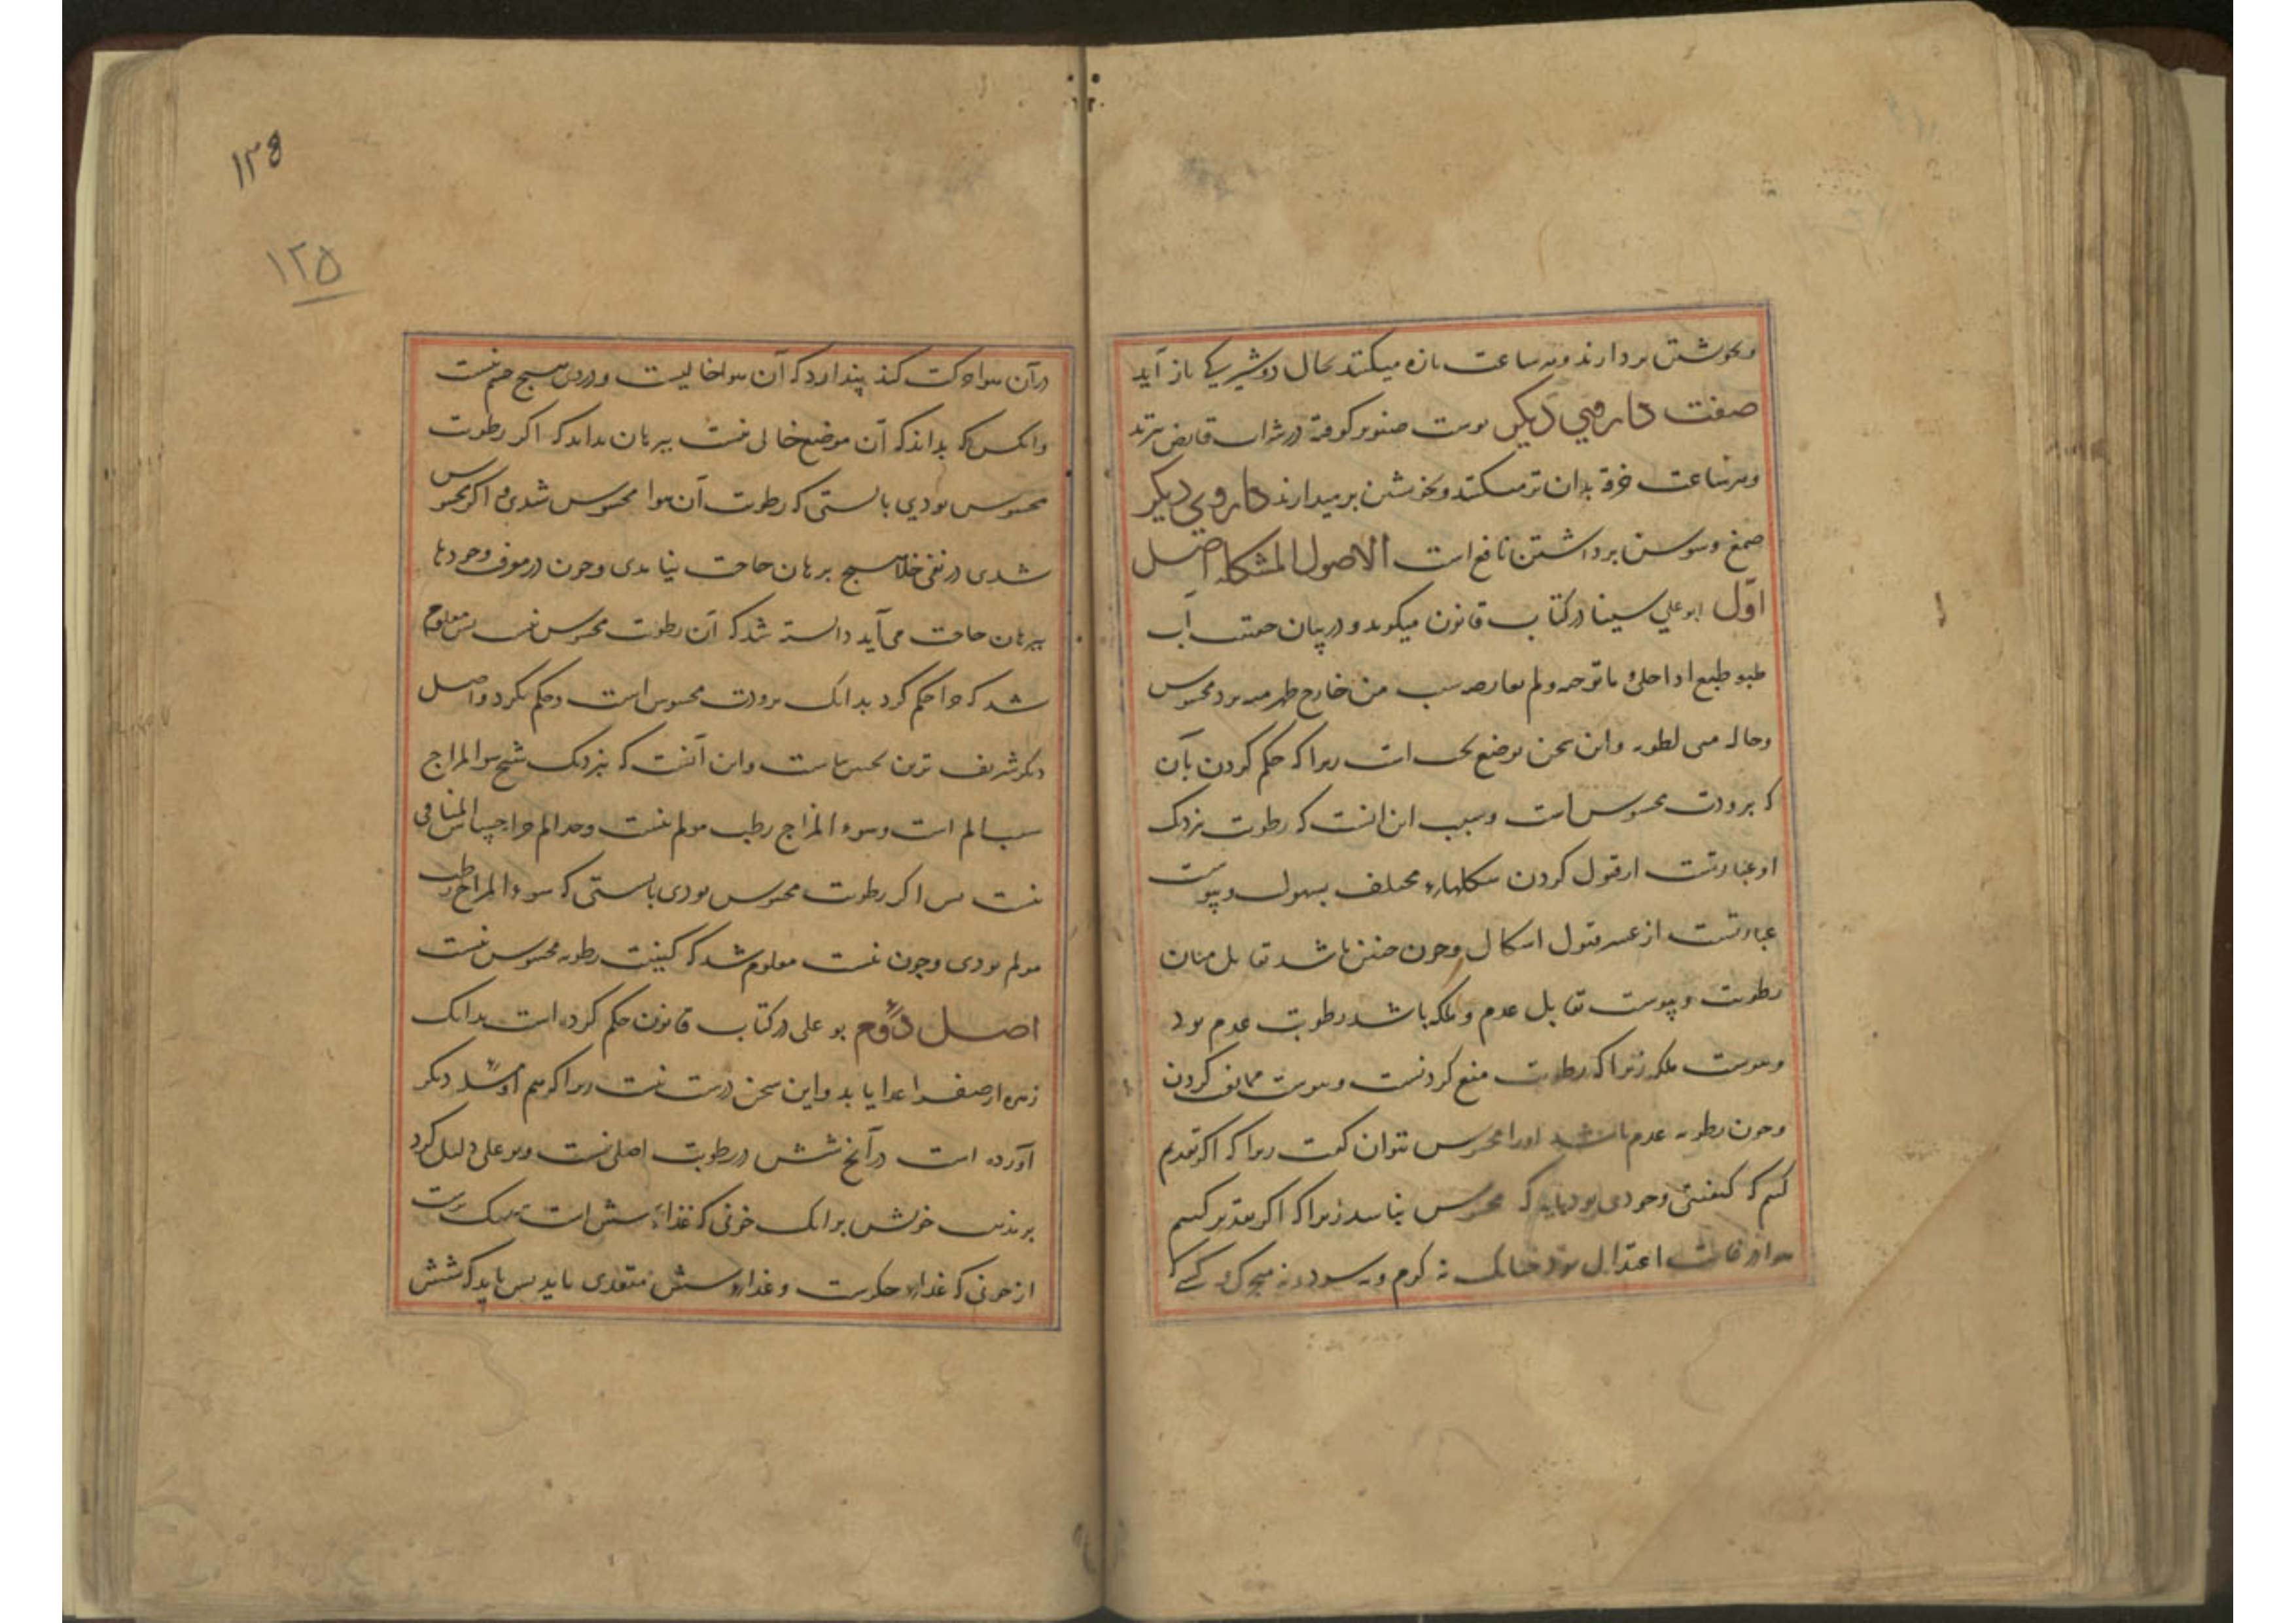 وبخوشتن بردارند وبه ساعت تازه میکنند بحال دوشیزیکی باز آید
صفت داروی دیکر پوست صنوبر کوفته در شراب قابض پزند
وهر ساعت خرقه بدان تر میکنند وبخوشتن برمیدارند داروی دیکر
صمغ وسوسن برداشتن نافع است الاصول المشکله اصل
اول ابو علی سینا در کتاب قانون میکوید و در بیان آب
طبع اذا خلی ما توجبه ولم یعارضه سبب من خارج ظهر فیه برد محسوس
وحاله هی رطوبه واین سخن موضع بحث است زیرا که حکم کردن بآن
که برودت محسوس است وسبب این انست که رطوبت نزدیک
او عبارتست از قبول کردن شکلهاء مختلف بسهولت ویبوست
عبارتست از عسر قبول اشکال وچون چنین باشد تقابل میان
رطوبت ویبوست تقابل عدم و ملکه باشد رطوبت عدم بود
ویبوست ملکه زیرا که رطوبت منع کردنست ویبوست ممانعت کردن
وچون رطوبه عدم باشد اورا محسوس نتوان کفت زیرا که اکر تقدیر
کنیم که کیفیتی وجودی بود باید که محسوس نباشد زیرا که اکر تقدیر کنیم
هوا در غایت اعتدال بود چنانک نه کرم ونه سرد ونه متحرک کسی که
۱۲۵
۱۲۵
در آن هوا حرکت کند پندارد که آن هوا خالیست ودروی هیچ جسم نیست
وانکس که بداند که آن موضع خالی نیست ببرهان بداند که اکر رطوبت
محسوس بودی بایستی که رطوبت آن هوا محسوس شدی و اکر محسوس
شدی در نفی خلا هیچ برهان حاجت نیامدی وچون در معرفت وجود ها
ببرهان حاجت می آید دانسته شد که آن رطوبت محسوس نیست پس معلوم
شد که چرا حکم کرد بدانک برودت محسوس است وحکم نکرد واصل
دیکر شریف ترین بحسهاست واین آنست که بنزدیک شیخ سوء المزاج
سبب الم است وسوء المزاج رطب مولم نیست وحد الم جز احساس المنافی
نیست پس اکر رطوبت محسوس بودی بایستی که سوء المزاج رطب
مولم بودی وچون نیست معلوم شد که کیفیت رطوبه محسوس نیست
اصل دوم بو علی در کتاب قانون حکم کرده است بدانک
زهره از صفرا غذا یابد واین سخن درست نیست زیرا که هم او مثله دیکر
آورده است در آنچ شش در رطوبت اصلی نیست وبو علی دلیل کرد
بر مذهب خویش بر انک خونی که غذاء شش است
از خونی که غذاء جکرست وغذاء شش متغذی باید پس باید که شش